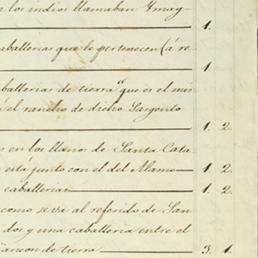 los indios llamaban Ymag-
1.
caballerias que le pertenecen (á re-
1
ballerias de tierra que es el mis
el rancho de dicho Sargento
1. 2.
en los llanos de Santa Cata
está junto con el del Alamo 1. 2.
caballerias 1. 2.
como se va al referido de San
dos y una caballeria entre el
de tierra 3. 1.